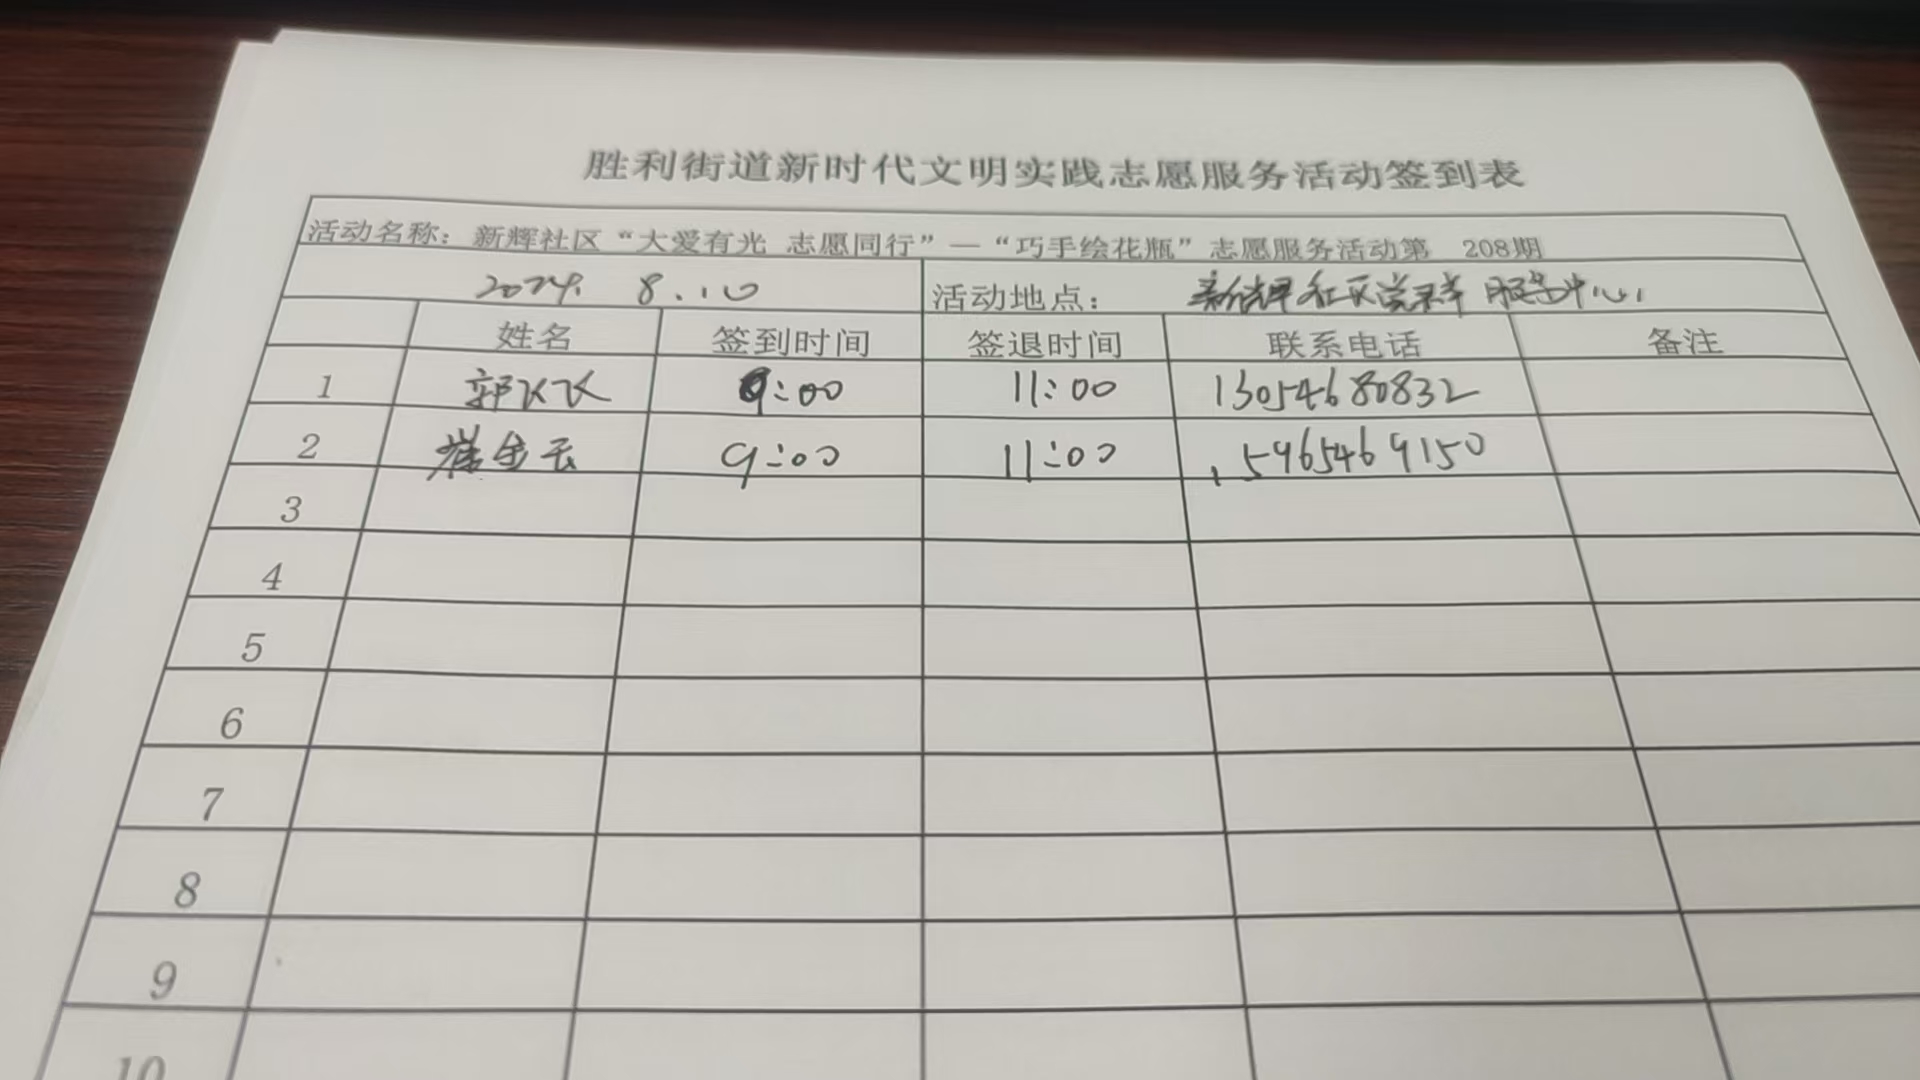 胜利街道新时代文明实践志愿服务活动签到表
活动名称：新辉社区“大爱有光 志愿同行”—“巧手绘花瓶”志愿服务活动第 208期
2024. 8.10 活动地点： 新辉社区党群服务中心
姓名 签到时间 签退时间 联系电话 备注
1 郭飞飞 9:00 11:00 13054680832
2 9:00 11:00 15965469150
3
4
5
6
7
8
9
10